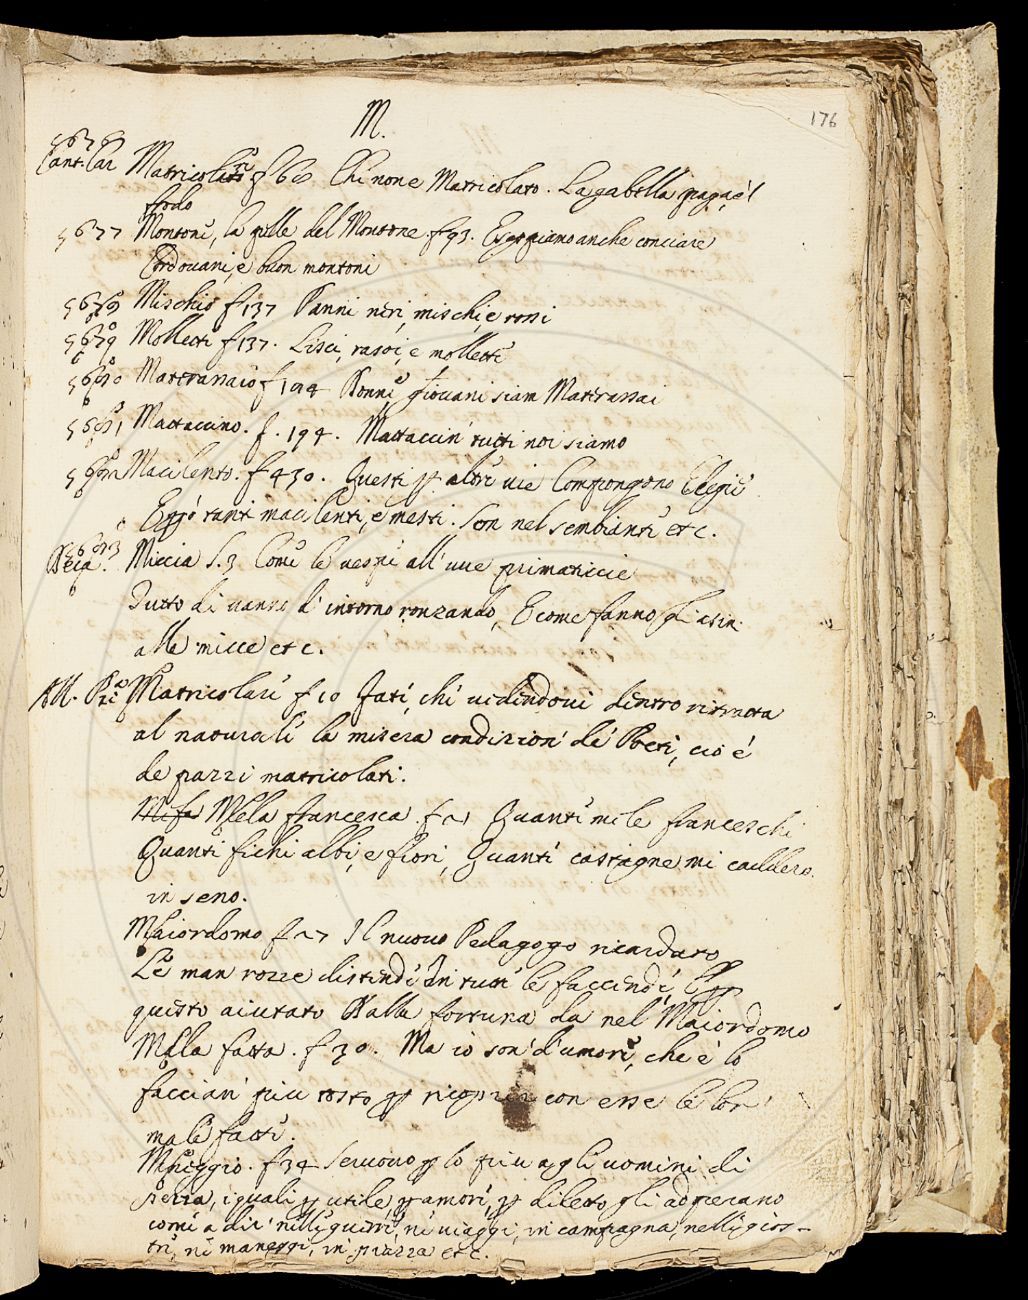 M.
176
5676
Cant. Car Matricolato f 60 Chi non e Matricolato. La gabella paga il
frodo
5677 Montoni, la pelle del Montone f 93. E sappiamo anche conciare
Cordovani, e buon montoni
5678 Mischio f 137 Panni neri, mischi, e rossi
5679 Molletti f 137. Lisci, rasoi, e molletti
5680 Matterassaio f 194 Donne, Giovani siam Matterassai
5681 Mattaccino. f. 194. Mattaccin' tutti noi siamo
5682 Macilento. f 430. Questi p altre vie Compongono Elegie
E pp ò tant' macilenti, e mesti. Son nel sembianti etc.
5683
Beca. Miccia S. 3 Come le vespe all' uve primaticcie
Tutto di vanno d' intorno ronzando, E come fanno gli asin
alle micce etc.
All. Pri Matricolari f 10 Fate, che vedendovi dentro ritratta
al naturale la misera condizion' de' Poeti, cio é
de pazzi matricolati.
Mela francesca f 21 Quante mele francesche
Quanti fichi albi, e fiori, Quante castagne mi caddero
in seno.
Maiordomo f 27 Il nuovo Pedagogo ricardato
Le man rozze distende In tutte le faccende, E pp
questo aiutato Dalla fortuna da nel Maiordomo
Mala fatta. f 30. Ma io son' d' umore, che é lo
faccian' piu tosto p ricoprir con esse le lor'
male fatte.
Maneggio. f 34 Servono p lo piu agli uomini di
Sierra, i quali p utile, p amore, p diletto gli adoperano
come a dir' nelle guerre, ne viaggi, in campagna, nelle gios-
tre, ne maneggi, in piazza etc.